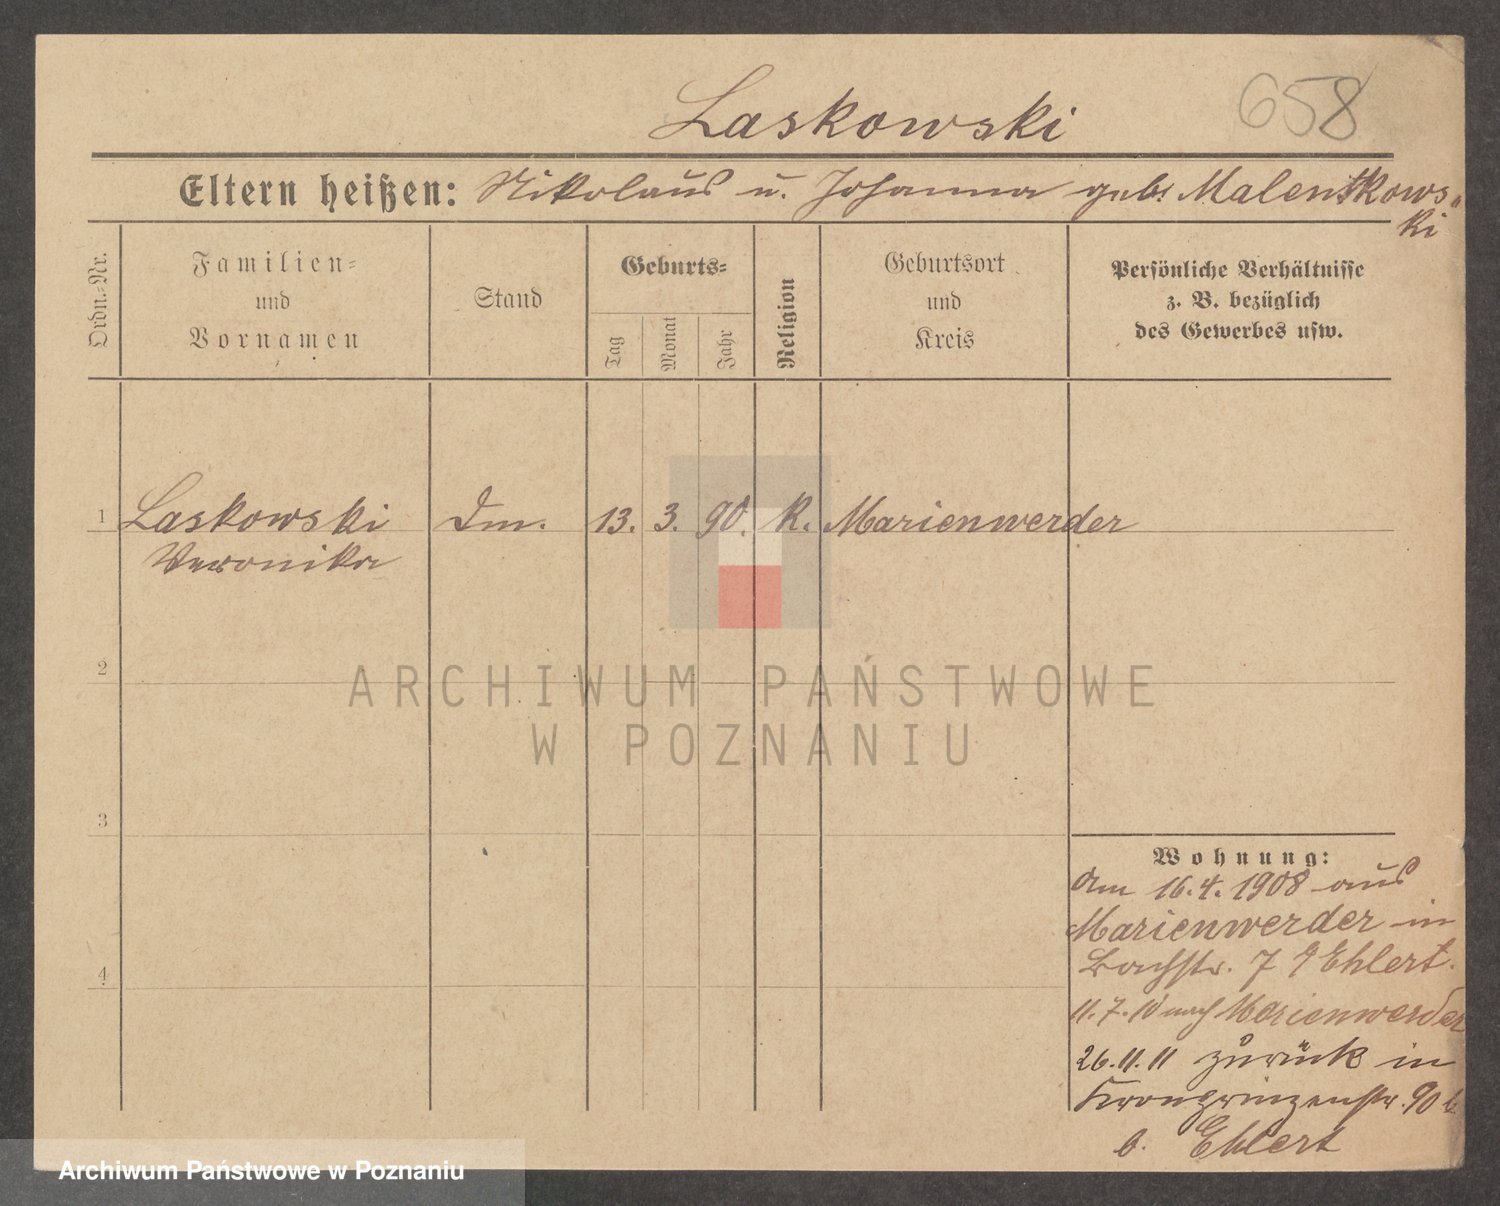 Laskowski
658
Eltern heißen: Nikolaus u. Johanna geb. Malentkows-
ki
Ordn.-Nr.
Familien-
und
Vornamen
Stand
Geburts-
Tag
Monat
Jahr
Religion
Geburtsort
und
Kreis
Persönliche Verhältnisse
z. B. bezüglich
des Gewerbes usw.
1 Laskowski Dm. 13. 3. 90. K. Marienwerder
Veronika
2
ARCHIWUM PAŃSTWOWE
W POZNANIU
3
Wohnung:
Am 16.4.1908 aus
Marienwerder in
Bachstr. 7 Ehlert.
4
11.7.10 nach Marienwerder
26.11.11 zurück in
Kronprinzenstr. 90
b. Ehlert
Archiwum Państwowe w Poznaniu